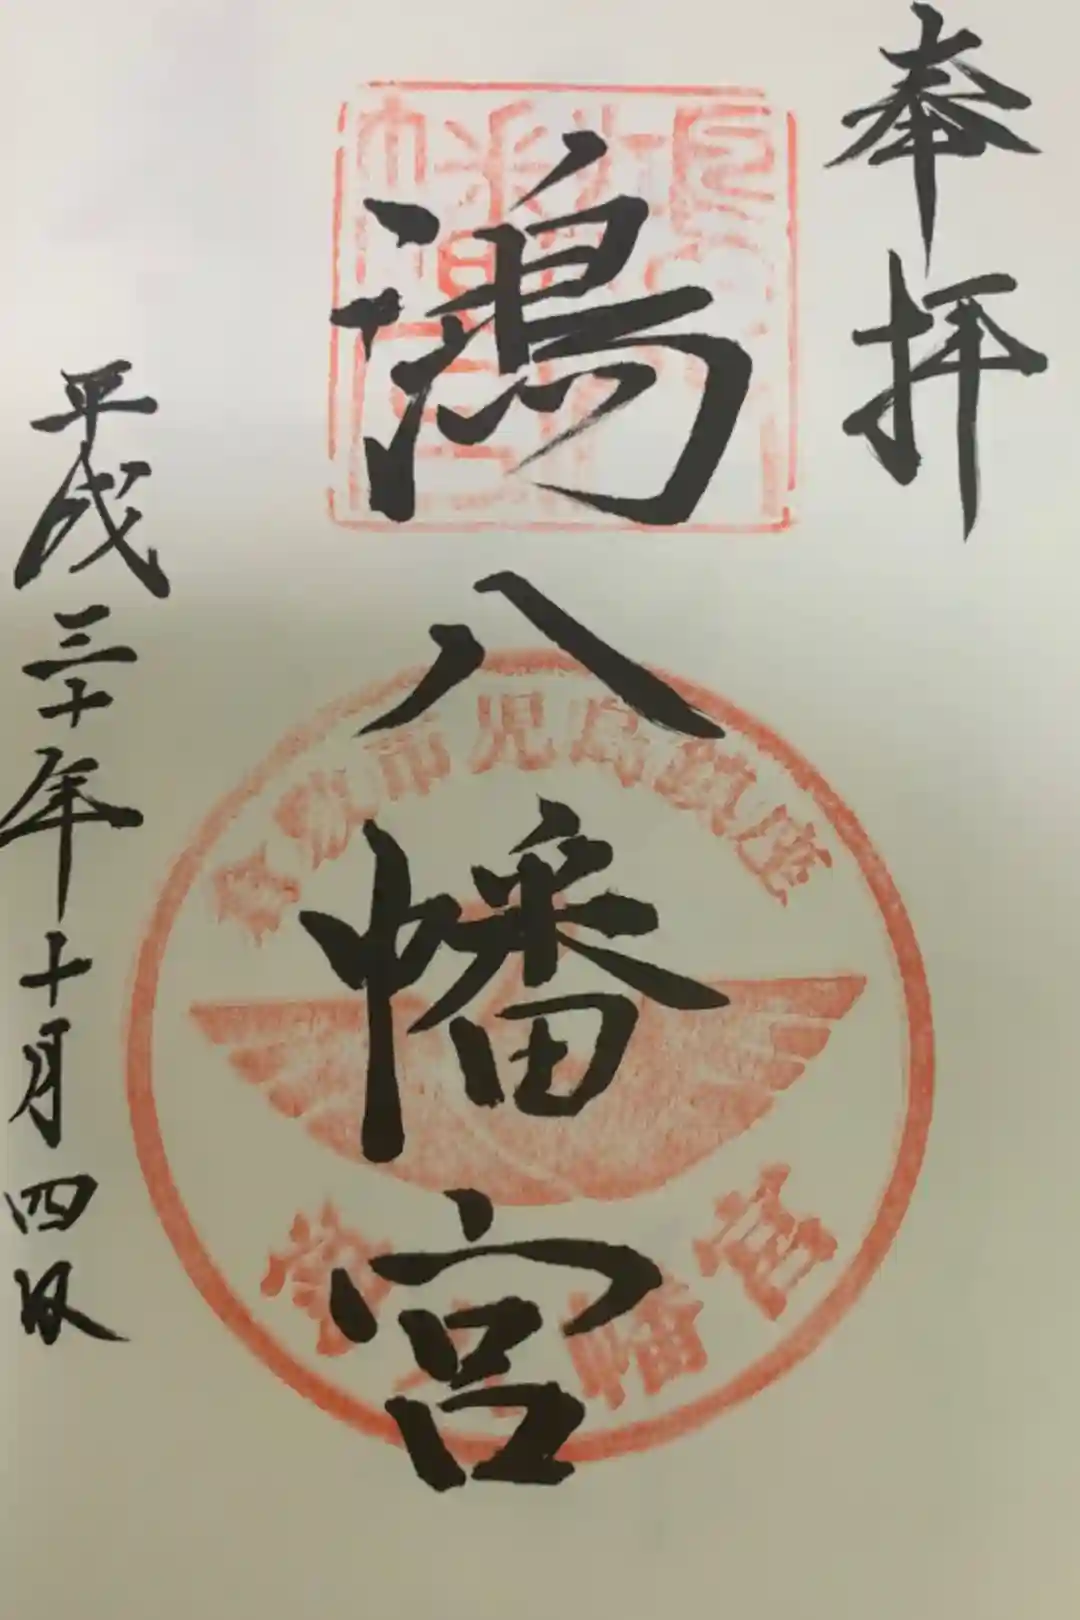 奉拝
鴻八幡宮
平成三十年十月四日
倉敷市児島鎮座
八幡宮